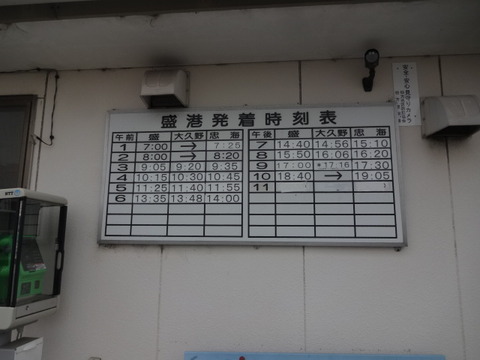 盛港発着時刻表
午前 盛 大久野 忠海
1 7:00 → 7:25
2 8:00 → 8:20
3 9:05 9:20 9:35
4 10:15 10:30 10:45
5 11:25 11:40 11:55
6 13:35 13:48 14:00
午後 盛 大久野 忠海
7 14:40 14:56 15:10
8 15:50 16:06 16:20
9 17:00 *17:16 17:30
10 18:40 → 19:05
11
安全・安心見守りカメラ
NTT